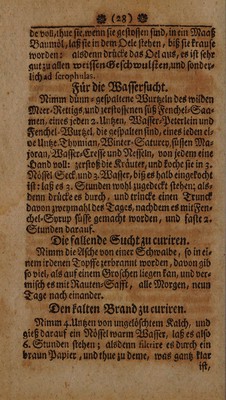 (28)
de voll, thue sie, wenn sie gestossen sind, in ein Maaß
Baumöl, laß sie in dem Oele stehen, biß sie krause
worden: alsdenn drücke das Oel aus, es ist sehr
gut zu allen weissen Geschwulsten, und sonder-
lich ad scrophulas.
Für die Wassersucht.
Nimm dünn-gespaltene Wurtzeln des wilden
Meer-Rettigs, und zerstossenen süß Fenchel-Saa-
men, eines ieden 2. Untzen, Wasser-Peterlein und
Fenchel-Wurtzel, die gespalten sind, eines ieden ei-
ne Untze, Thymian, Winter-Saturey, süssen Ma-
joran, Wasser-Cresse und Nesseln, von jedem eine
Hand voll: zerstoß die Kräuter, und koche sie in 3.
Nössel Seck, und 3. Wasser, biß es halb eingekocht
ist: laß es 3. Stunden wohl zugedeckt stehen; als-
denn drücke es durch, und trincke einen Trunck
davon zweymahl des Tages, nachdem es mit Fen-
chel-Syrup süsse gemacht worden, und faste 2.
Stunden darauf.
Die fallende Sucht zu curiren.
Nimm die Asche von einer Schwalbe, so in ei-
nem irdenen Topffe verbrannt worden, davon gib
so viel, als auf einem Groschen liegen kan, und ver-
misch es mit Rauten-Safft, alle Morgen, neun
Tage nach einander.
Den kalten Brand zu curiren.
Nimm 4. Untzen von ungelöschtem Kalch, und
gieß darauf ein Nössel warm Wasser, laß es also
6. Stunden stehen; alsdenn filtrire es durch ein
braun Papier, und thue zu deme, was gantz klar
ist,